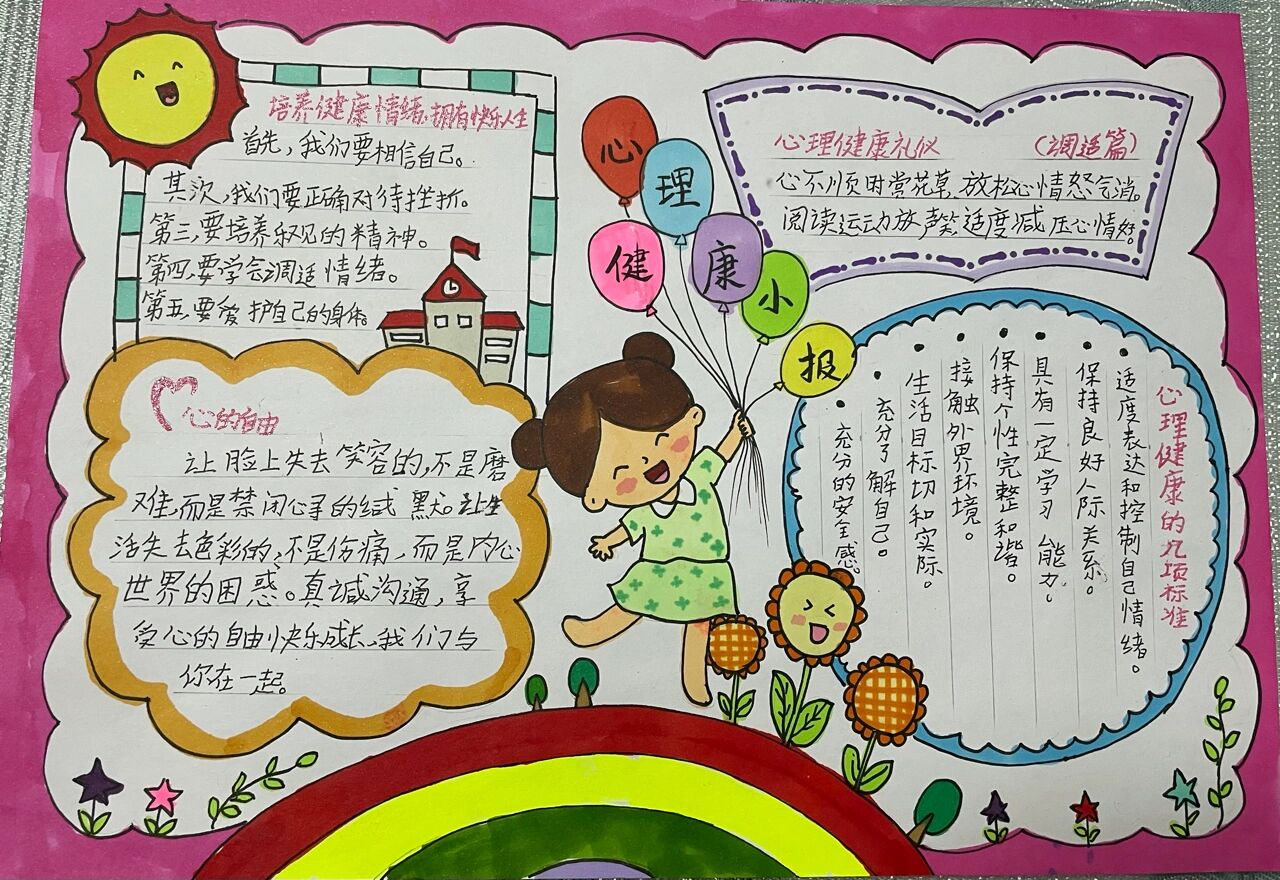 心理健康小报
培养健康情绪,拥有快乐人生
首先,我们要相信自己。
其次,我们要正确对待挫折。
第三,要培养乐观的精神。
第四,要学会调适情绪。
第五,要爱护自己的身体。
心的自由
让脸上失去笑容的,不是磨
难,而是禁闭心灵的缄默。让生
活失去色彩的,不是伤痛,而是内心
世界的困惑。真诚沟通,享
受心的自由快乐成长,我们与
你在一起。
心理健康礼仪 (调适篇)
心不顺时赏花草,放松心情怒气消。
阅读运动放声笑,适度减压心情好。
心理健康的九项标准
适度表达和控制自己情绪。
保持良好人际关系。
具有一定学习能力。
保持个性完整和谐。
接触外界环境。
生活目标切和实际。
充分了解自己。
充分的安全感。